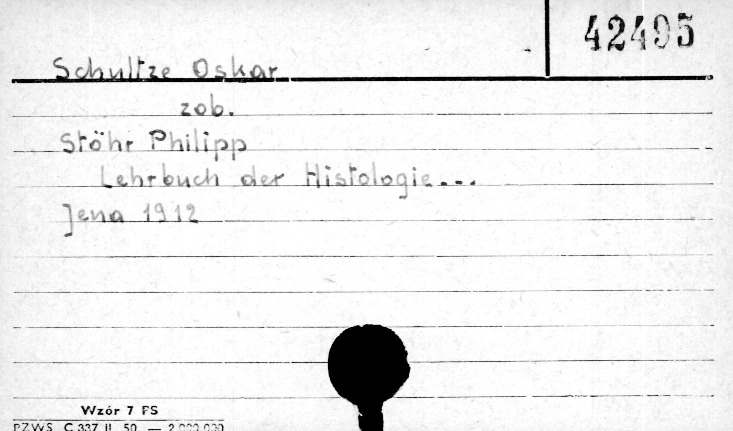 42495
Schultze Oskar
zob.
Stöhr Philipp
Lehrbuch der Histologie...
Jena 1912
Wzór 7 PS
PZWS C 337 II. 50. — 2.000.000